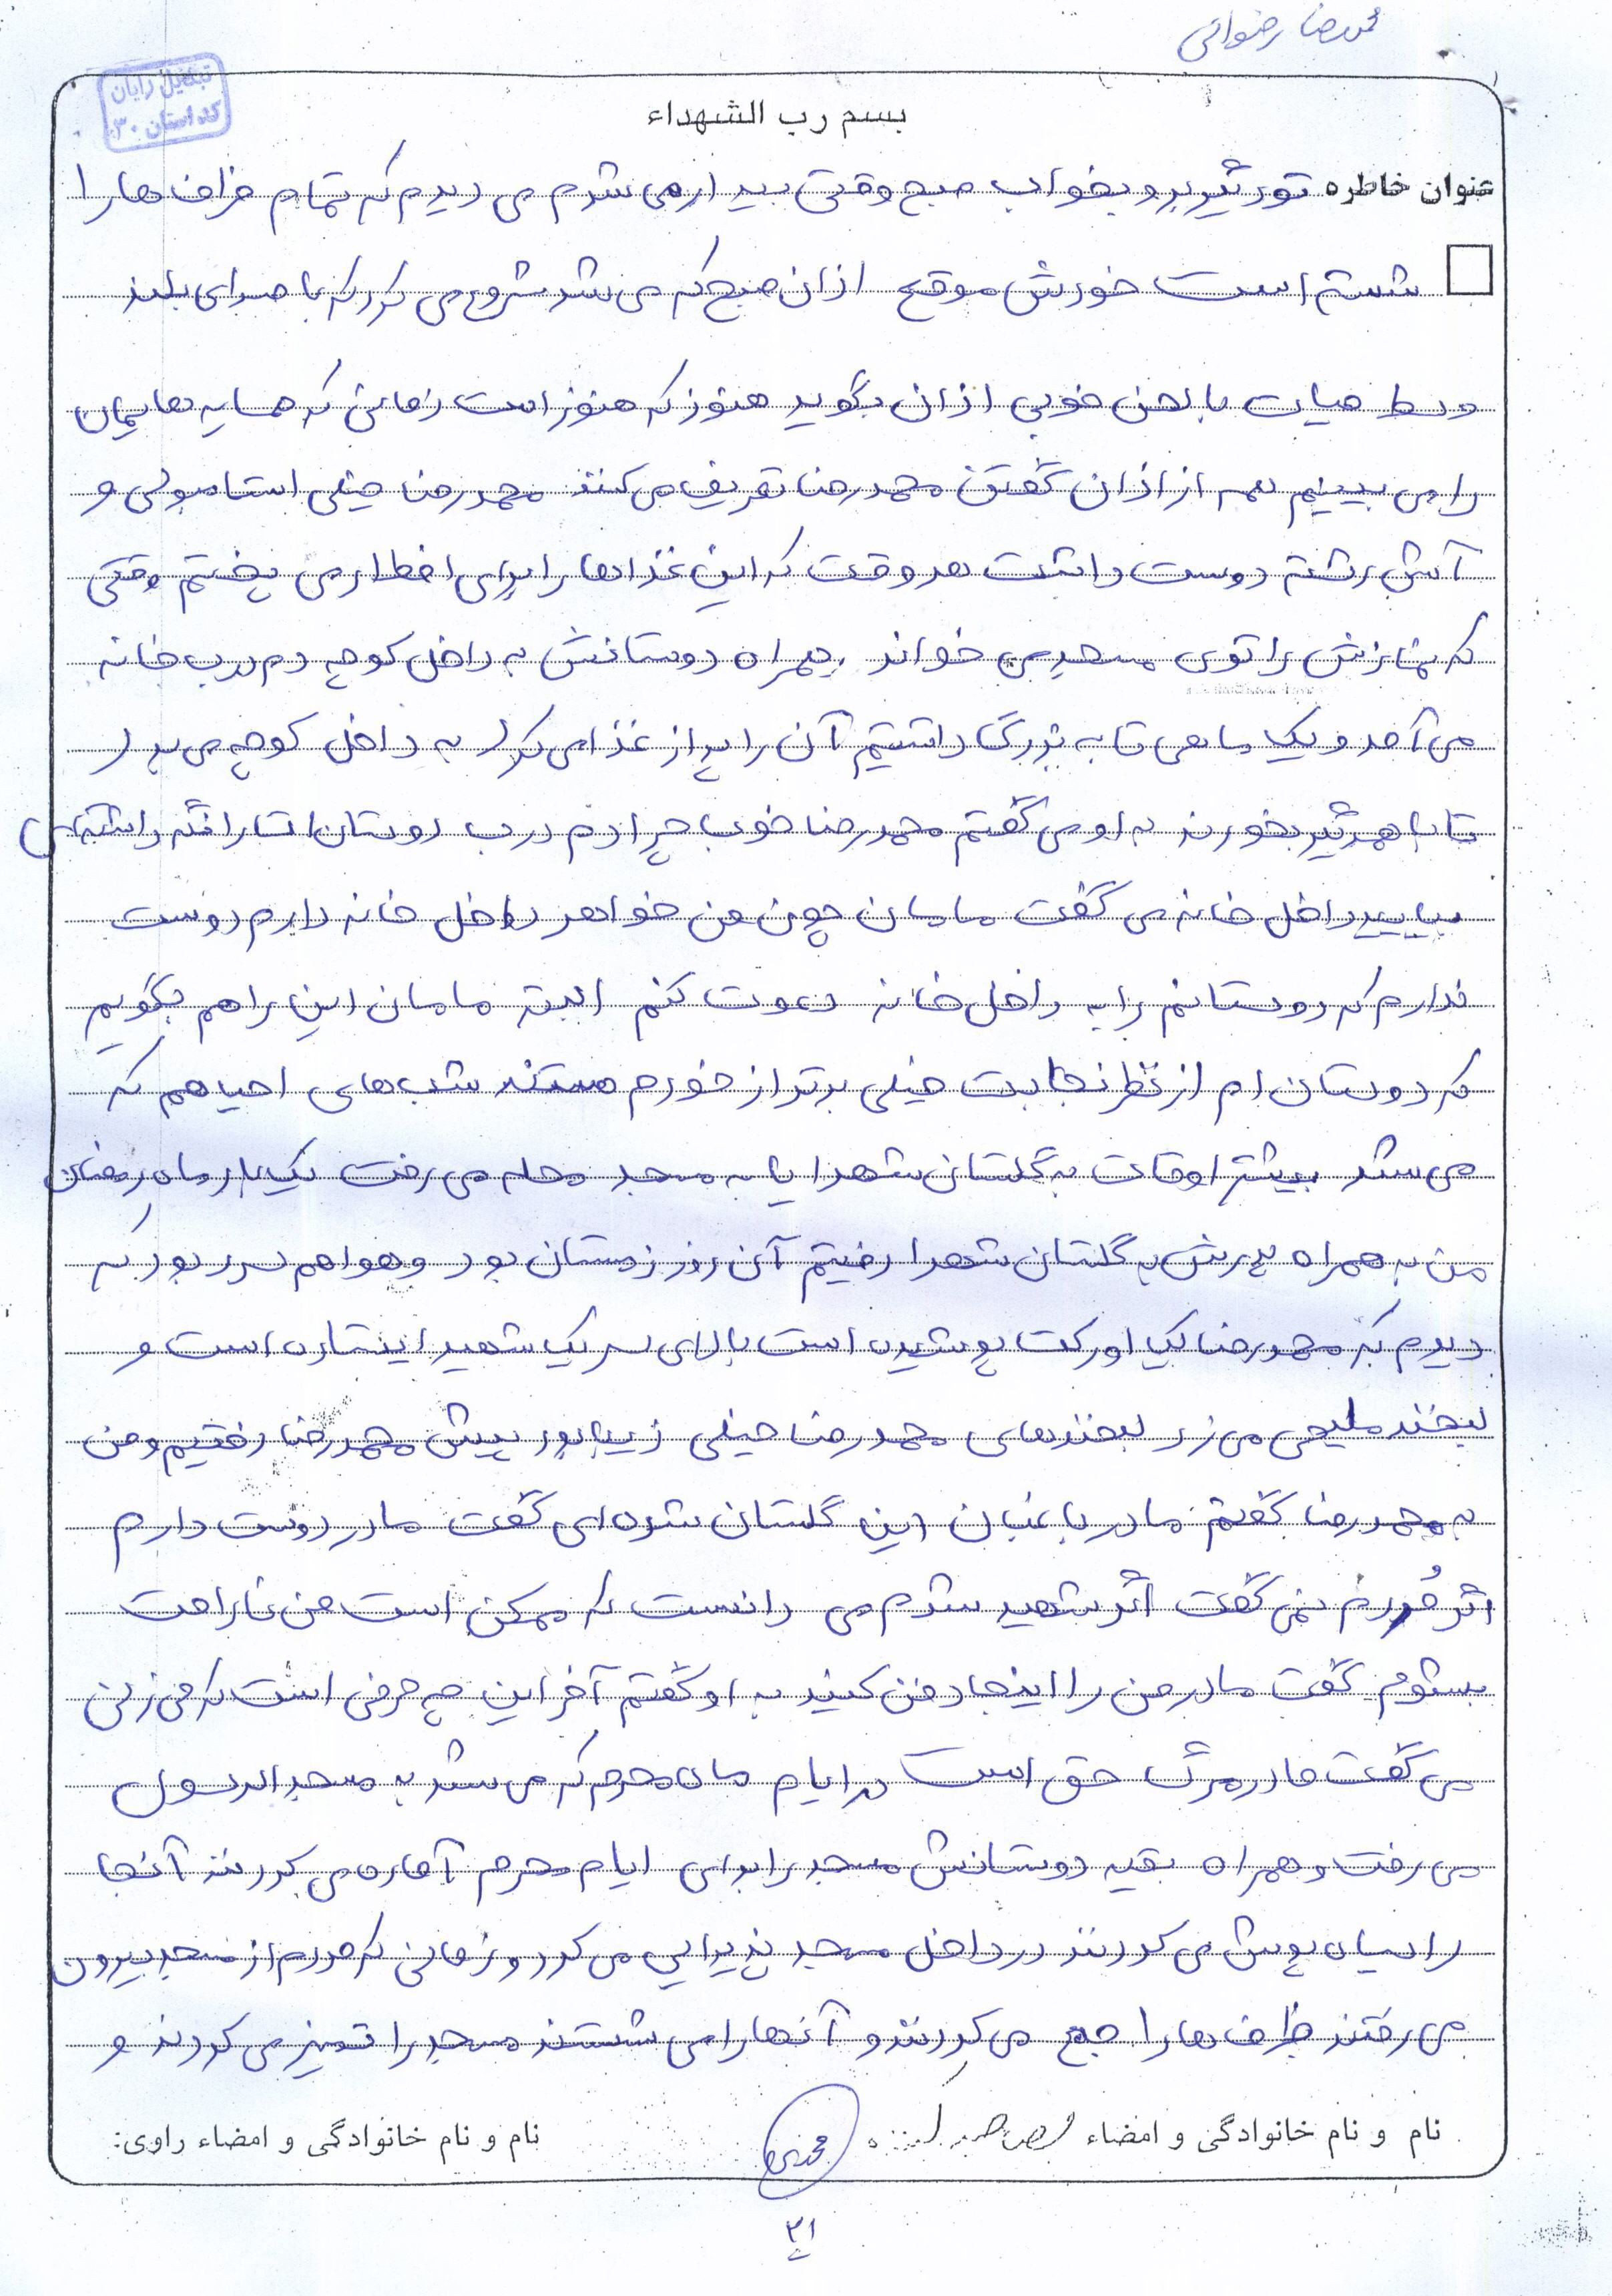 محمدرضا رضوانی
تبدیل رایان
کد استان ۳۰
بسم رب الشهداء
عنوان خاطره تو دیگر برو بخواب صبح وقتی بیدار می شدم می دیدم که تمام ظرف ها را
شسته است خودش موقع اذان صبح که می شد شروع می کرد که با صدای بلند
وسط حیاط با لحن خوبی اذان بگوید هنوز که هنوز است زمانی که همسایه هایمان
را می بینیم همه از اذان گفتن محمدرضا تعریف می کنند محمدرضا خیلی استامبولی و
آش رشته دوست داشت هر وقت که این غذاها را برای افطار می پختم وقتی
که نمازش را توی مسجد می خواند همراه دوستانش به داخل کوچه دم درب خانه
می آمد و یک ماهی تابه بزرگ داشتیم آن را پر از غذا می کرد به داخل کوچه می برد
تا با همدیگر بخورند به او می گفتم محمدرضا خوب چرا دم درب دوستان
بیایید داخل خانه می گفت مامان چون من خواهر داخل خانه دارم دوست
ندارم که دوستانم را به داخل خانه دعوت کنم البته مامان این را هم بگویم
که دوستان ام از نظر نجابت خیلی برتر از خودم هستند شب های احیا هم که
می شد بیشتر اوقات به گلستان شهدا یا به مسجد محله می رفت یک بار ماه رمضان
من به همراه پدرش به گلستان شهدا رفتیم آن روز زمستان بود و هوا هم سرد بود که
دیدم که محمدرضا یک اورکت پوشیده است بالای سر یک شهید ایستاده است و
لبخند ملیحی می زد لبخندهای محمدرضا خیلی زیبا بود پیش محمدرضا رفتیم و من
به محمدرضا گفتم مادر باغبان این گلستان شده ای گفت مادر دوست دارم
اگر مُردم نمی گفت اگر شهید شدم می دانست که ممکن است من ناراحت
بشوم گفت مادر من را اینجا دفن کنید به او گفتم آخر این چه حرفی است که می زنی
می گفت مادر مرگ حق است در ایام ماه محرم که می شد به مسجد الرسول
می رفت و همراه بقیه دوستانش مسجد را برای ایام محرم آماده می کردند آنجا
را سیاه پوش می کردند در داخل مسجد پذیرایی می کرد و زمانی که مردم از مسجد بیرون
می رفتند ظرف ها را جمع می کردند و آنها را می شستند مسجد را تمیز می کردند و
نام و نام خانوادگی و امضاء
نام و نام خانوادگی و امضاء راوی:
۳۱